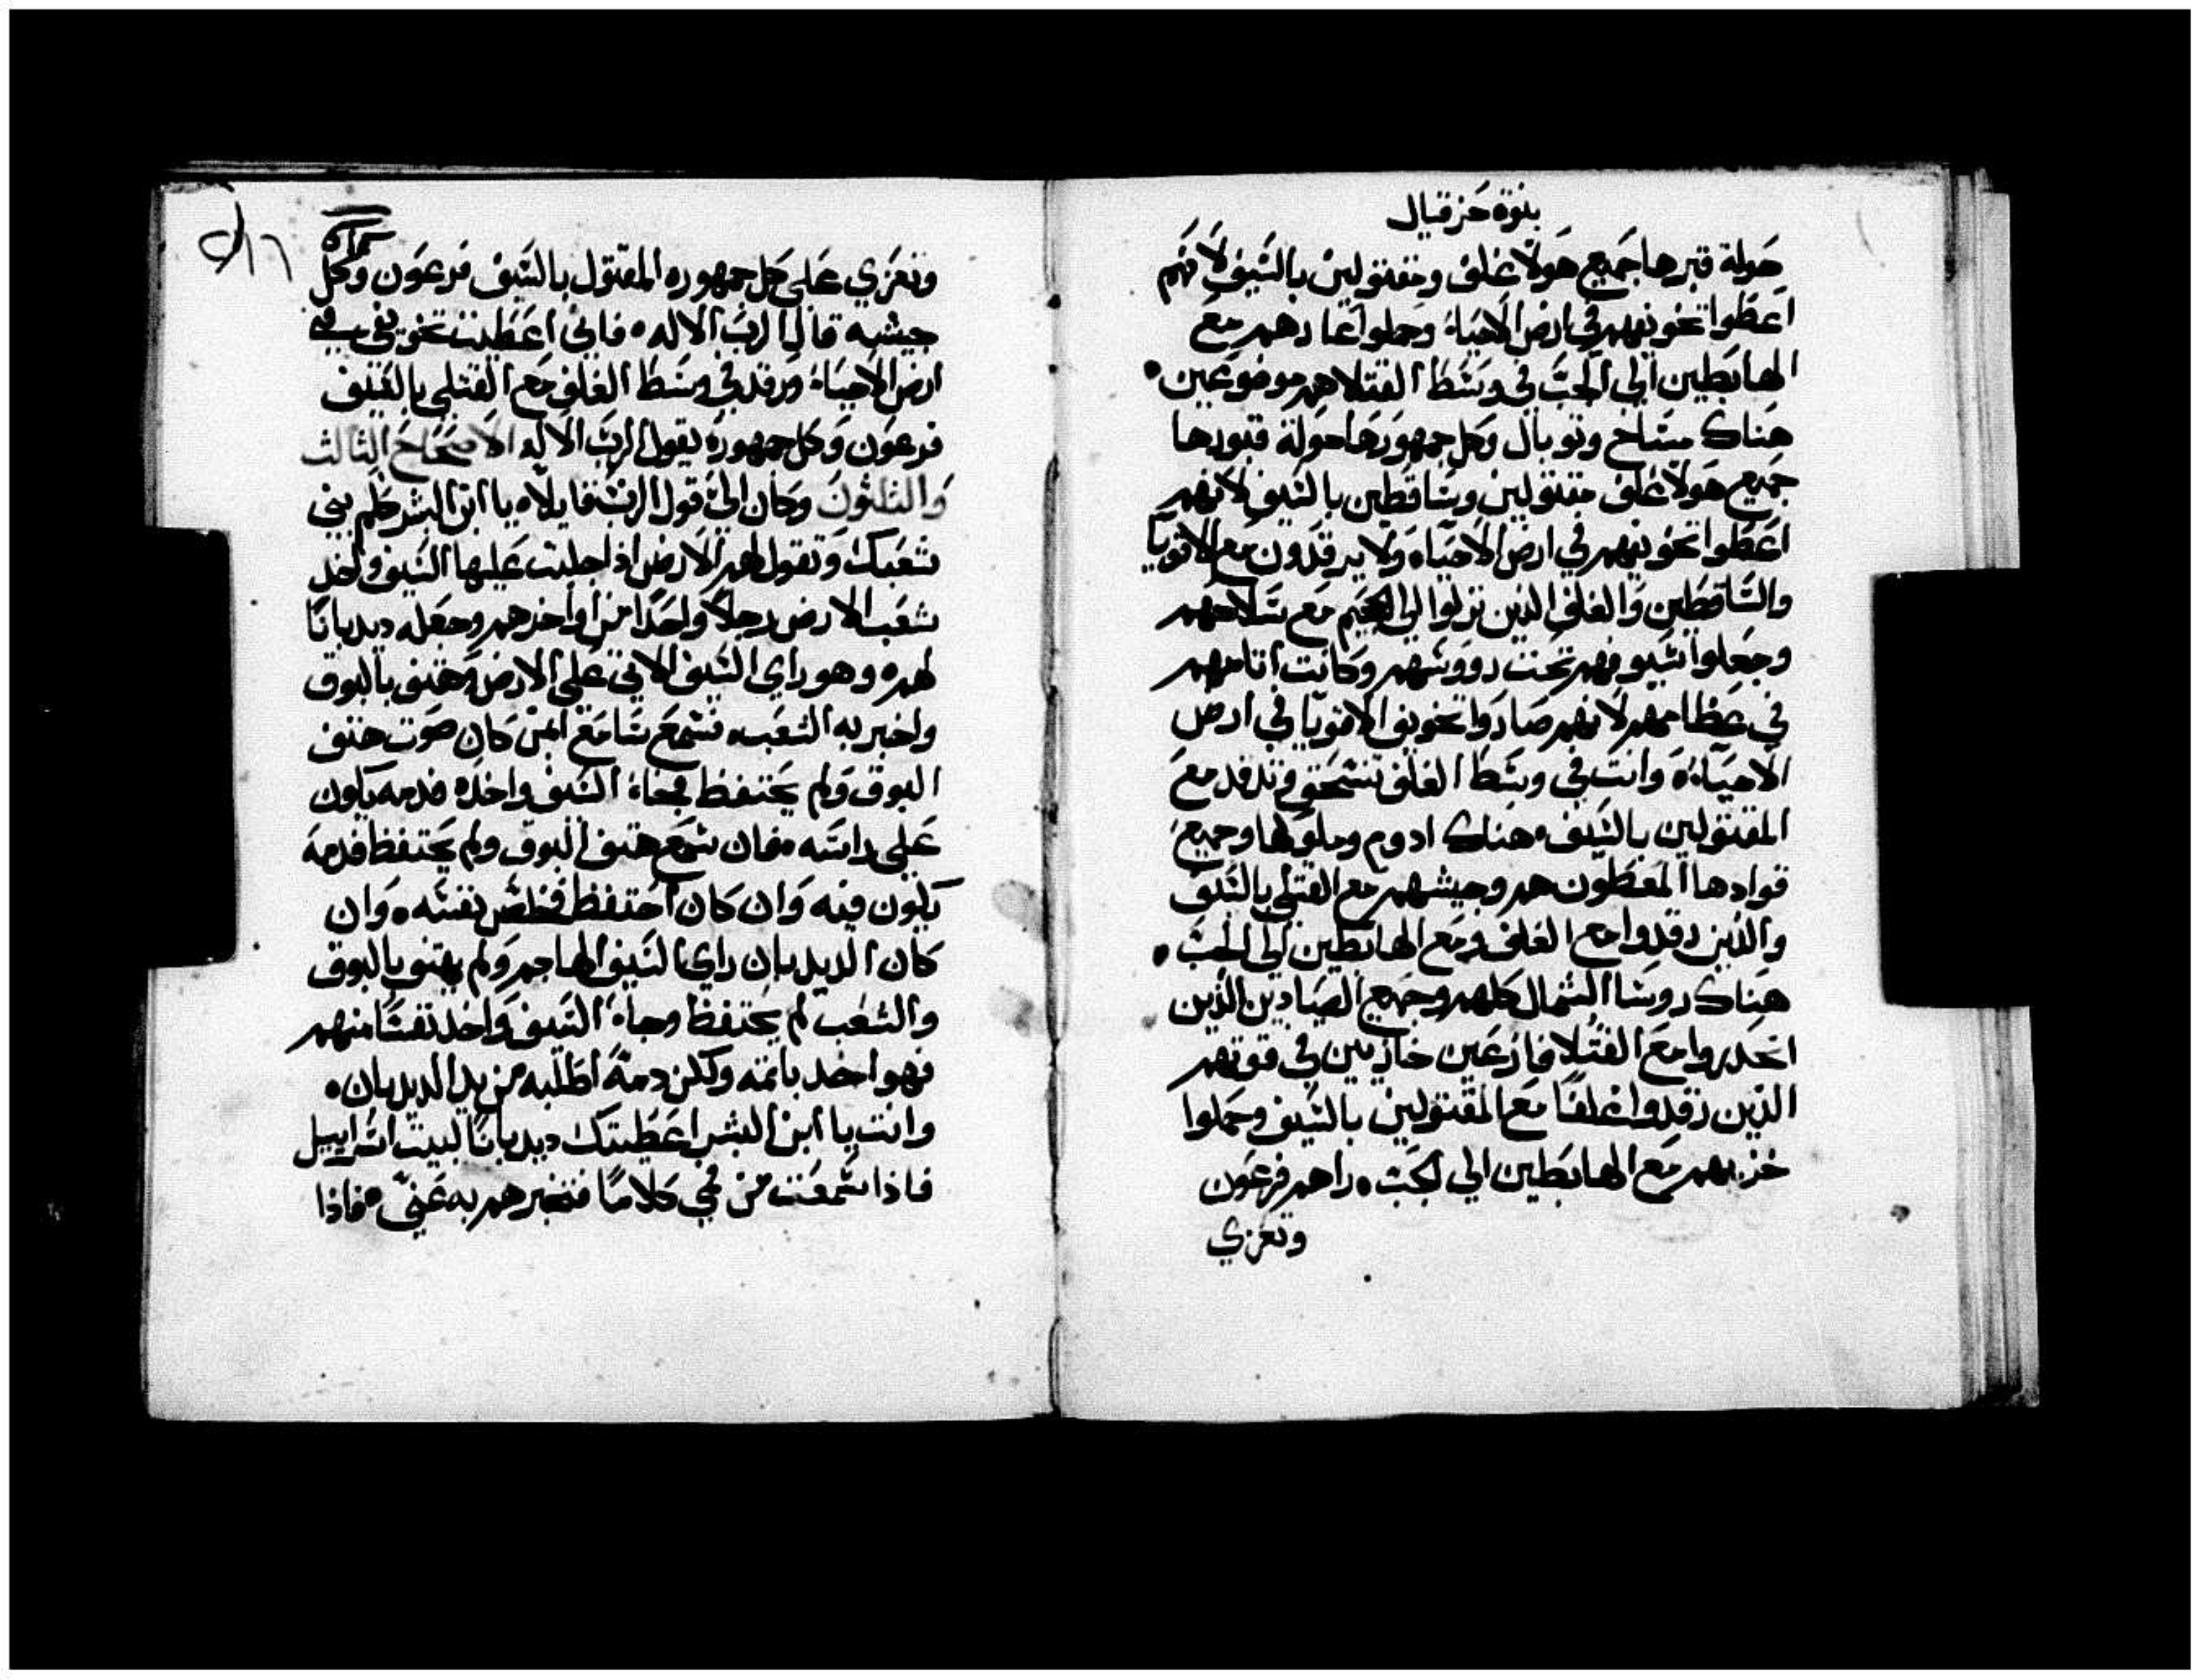 بنوة حزقيال
حولة قبرها جميع هولا غلف ومقتولين بالسيف لانهم
اعطوا تخويفهم في ارض الاحياء وحملوا عارهم مع
الهابطين الي الجب في وسط القتلا هم موضوعين
هناك مساخ وتوبال وكل جمهورها حولة قبورها
جميع هولا غلف مقتولين وساقطين بالسيف لانهم
اعطوا تخويفهم في ارض الاحياه ولا يرقدون مع الاقويا
والساقطين والغلف الذين نزلوا الي الجحيم مع سلاحهم
وجعلوا سيوفهم تحت رووسهم وكانت اثامهم
في عظامهم لانهم صاروا تخويف الاقويا في ارض
الاحياء وانت في وسط الغلف تنسحق وترقد مع
المقتولين بالسيف هناك ادوم وملوكها وجميع
قوادها المعطون هم وجيشهم مع القتلي بالسيف
والذين رقدوا مع الغلف ومع الهابطين الي الجب
هناك روسا الشمال كلهم وجميع الصيادين الذين
انحدروا مع القتلا فازعين خازيين في قوتهم
الذين رقدوا غلفا مع المقتولين بالسيف وحملوا
خزيهم مع الهابطين الي الجب راهم فرعون
وتعزي
وتعزي علي كل جمهوره المقتول بالسيف فرعون وكل
جيشه قال الرب الاله فاني اعطيت تخويفي في
ارض الاحياء ورقد في وسط الغلف مع القتلي بالسيف
فرعون وكل جمهوره يقول الرب الاله الاصحاح الثالث
والثلثون وكان الي قول الرب قايلا يا ابن البشر كلم بني
شعبك وتقول لهم الارض اذا جلبت عليها السيف واخذ
شعب الارض رجلا واحدا من اواخرهم وجعله ديدبانا
لهم وهو راي السيف الاتي علي الارض وهتف بالبوق
واخبر به الشعب فسمع سامع المن كان صوت هتف
البوق ولم يحتفظ فجاء السيف واخذه فدمه يكون
علي راسه فان سمع هتف البوق ولم يحتفظ فدمه
يكون فيه وان كان احتفظ فخلص نفسه وان
كان الديدبان راي السيف الهاجم ولم يهتف بالبوق
والشعب لم يحتفظ وجاء السيف واخذ نفسا منهم
فهو اخذ باثمه ولكن دمه اطلبه من يد الديدبان
وانت يا ابن البشر اعطيتك ديدبانا لبيت اسراييل
فاذا سمعت من في كلاما فتخبرهم به عني فاذا